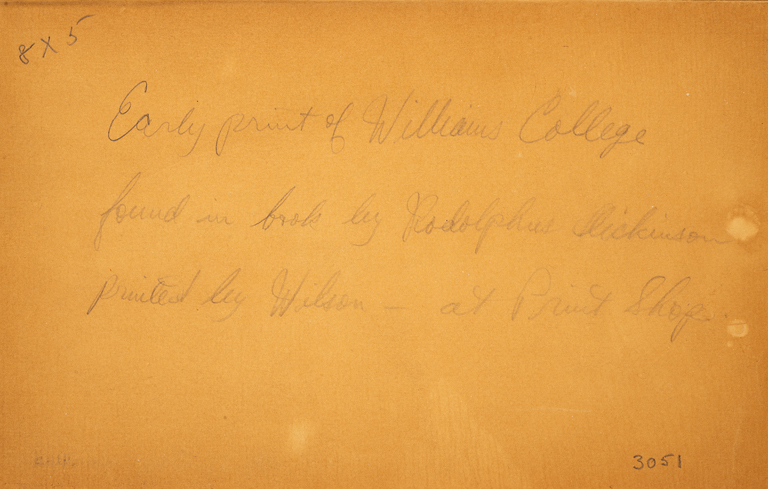 8 X 5
Early print of Williams College
found in book by Rodolphus Dickinson
printed by Wilson — at Print Shop.
3051